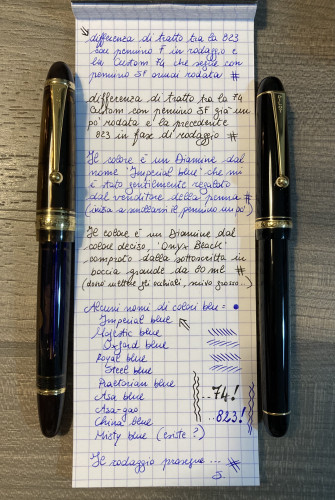 differenza di tratto tra la 823
con pennino F in rodaggio e
la Custom 74 che segue con
pennino SF ormai rodata #
differenza di tratto tra la 74
Custom con pennino SF già un
po' rodata e la precedente
823 in fase di rodaggio #
Il colore è un Diamine dal
nome 'Imperial blue' che mi
è stato gentilmente regalato
dal venditore della penna #
(inizia a mollarsi il pennino un po')
Il colore è un Diamine dal
colore deciso, 'Onyx Black'
comprato dalla sottoscritta in
boccia grande da 80 ml #
(dovrò mettere gli occhiali, scrivo grosso...)
Alcuni nomi di colori blu =
Imperial blue
Majestic blue
Oxford blue
Royal blue
Steel blue
Prætorian blue
Asa blue
Asa-gao
China blue
Misty blue (corte?)
...74!
...823!
Il rodaggio prosegue ... #
S.